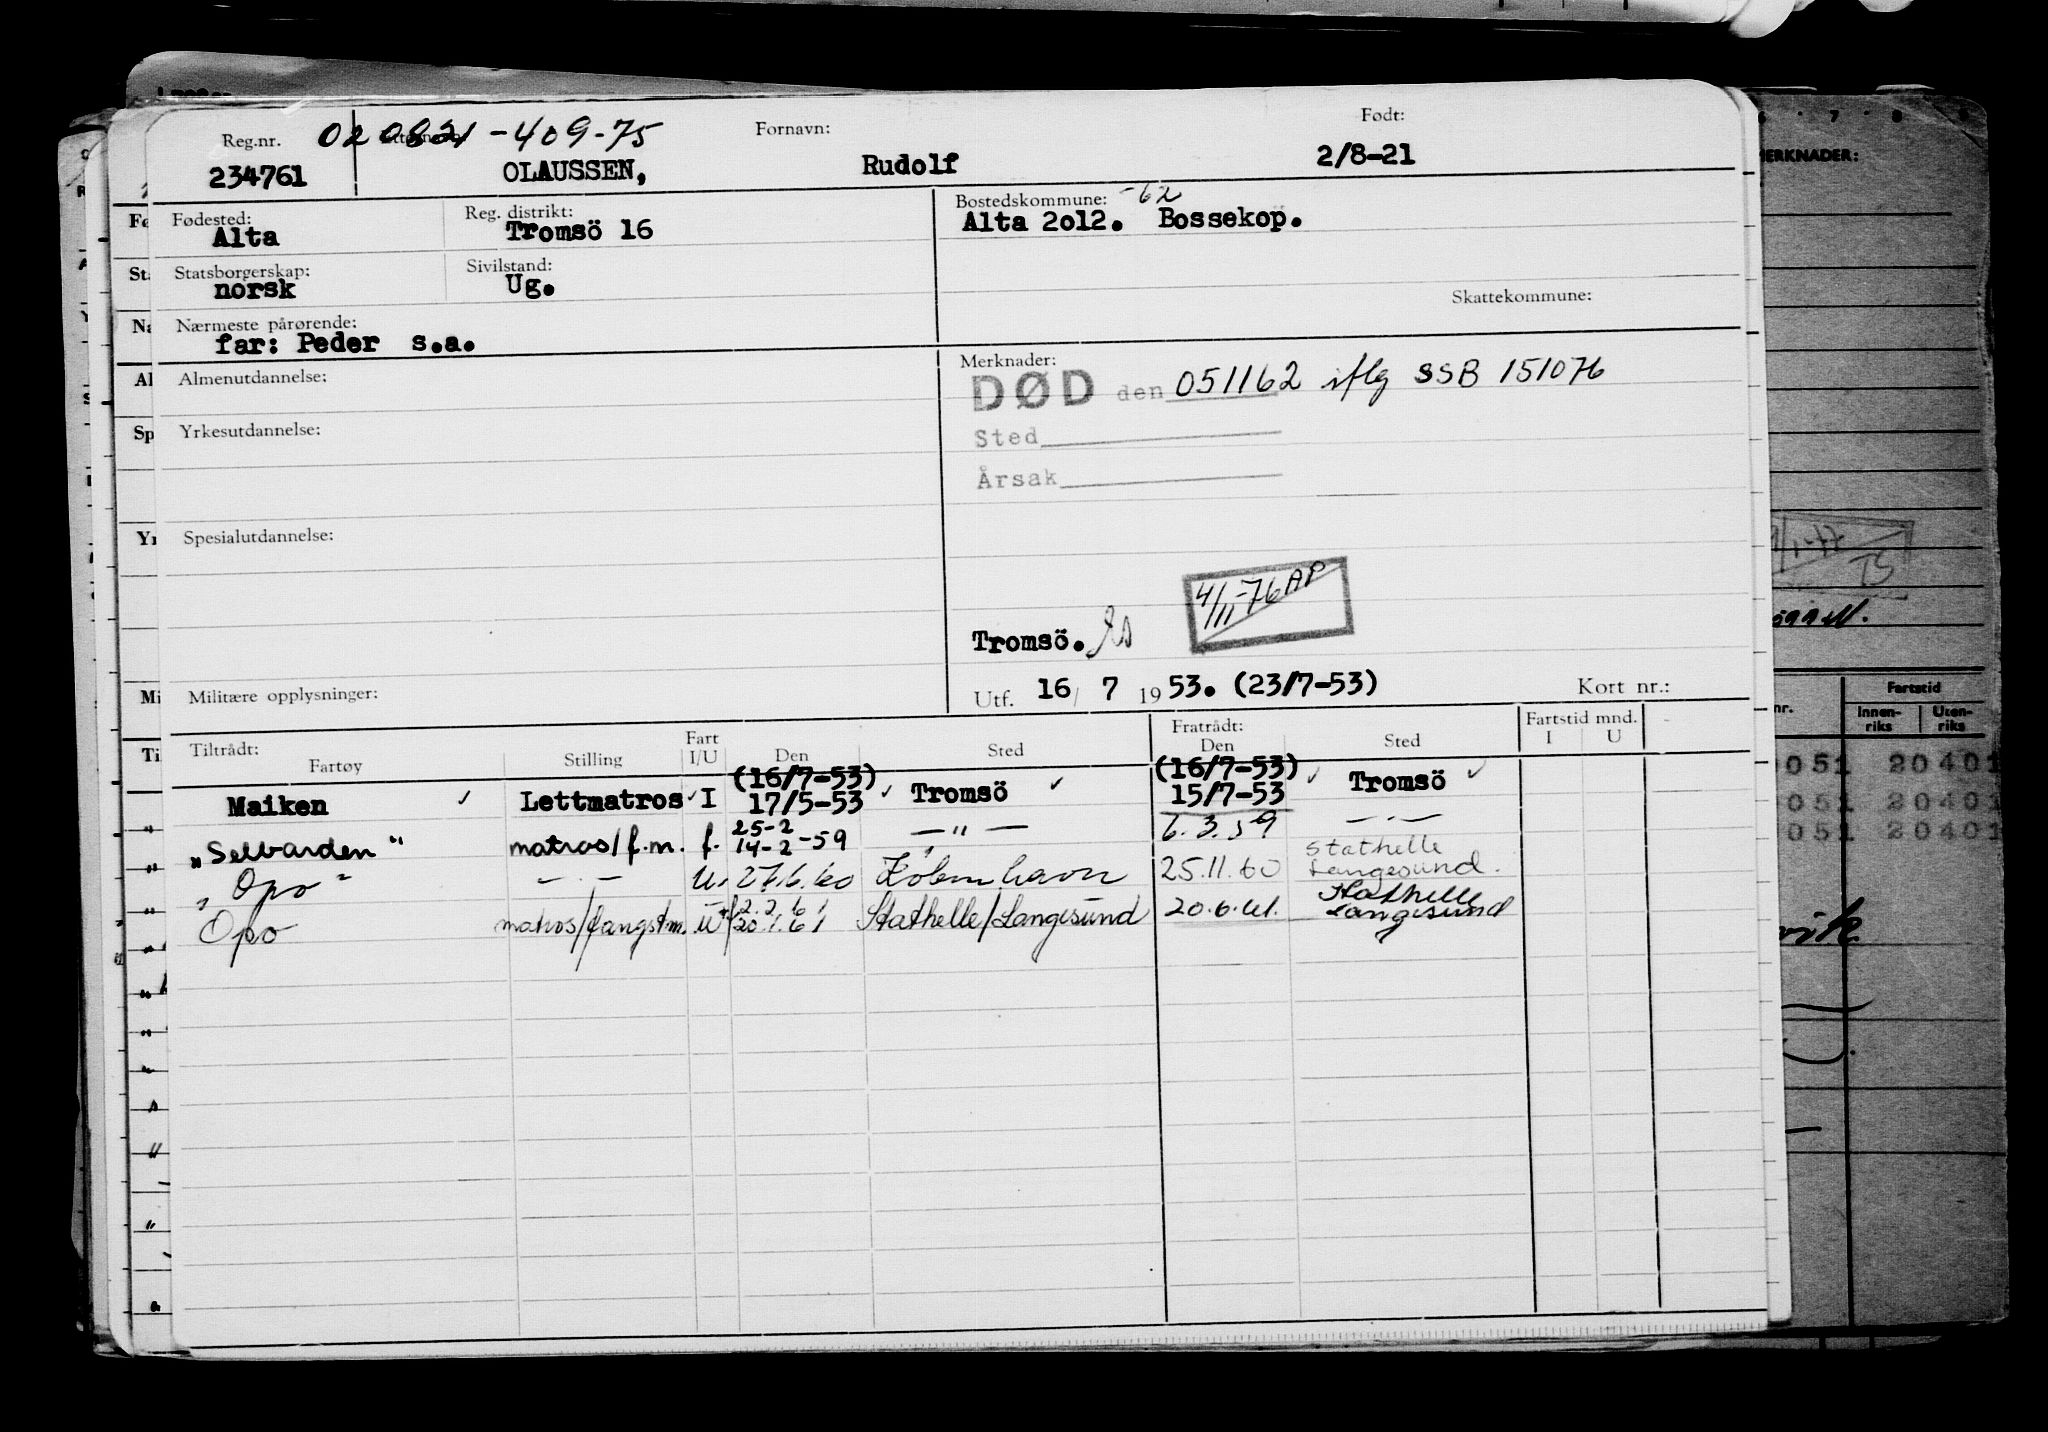 Reg.nr. 020821-409-75 Fornavn: Født:
234761 OLAUSSEN, Rudolf 2/8-21
Fødested: Reg. distrikt: Bostedskommune: -62
Alta Tromsö 16 Alta 2012. Bossekop.
Statsborgerskap: Sivilstand:
norsk Ug.
Skattekommune:
Nærmeste pårørende:
far: Peder s.a.
Almenutdannelse: Merknader:
DØD den 051162 iflg SSB 151076
Yrkesutdannelse: Sted
Årsak
Spesialutdannelse:
4/11-76 AP
Tromsö.
Militære opplysninger: Utf. 16/ 7 1953. (23/7-53) Kort nr.:
Tiltrådt: Fart Fratrådt: Fartstid mnd.
Fartøy Stilling I/U Den Sted Den Sted I U
(16/7-53) (16/7-53)
Maiken Lettmatros I 17/5-53 Tromsö 15/7-53 Tromsö
25-2
"Selbarden" matros/f.m. f. 14-2-59 — " — 6.3.59 — " —
Stathelle
"Opo" — " — U. 27.6.60 København 25.11.60 Langesund.
2.2.61 Stathelle
Opo matros/fangstm. U 20.1.61 Stathelle/Langesund 20.6.61. Langesund
MERKNADER:
1/1-77
TS
nr. Fartstid
Innen-riks Uten-riks
0051 20401
0051 20401
0051 20401